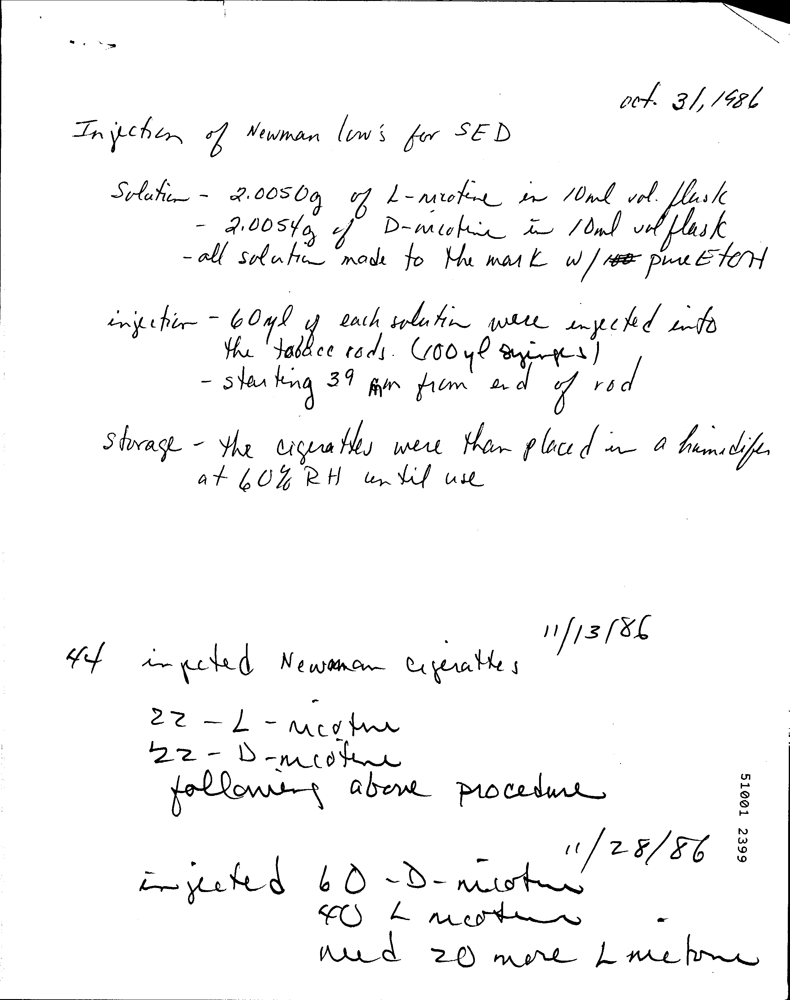 oct. 31, 1986
Injection of Newman low's for SED
Solution - 2.0050g of L-nicotine in 10ml vol. flask
- 2.0054g of D-nicotine in 10ml vol flask
- all solution made to the mark w/ pure EtOH
injection - 60µl of each solution were injected into
the tobacco rods. (100µl syringes)
- starting 39 mm from end of rod
storage - the cigerattes were than placed in a humidifer
at 60% RH until use
11/13/86
44 injected Newman cigerattes
22 - L - nicotine
22 - D - nicotine
following above procedure
11/28/86
injected 60 - D - nicotine
40 L nicotine
need 20 more L nicotine
51001 2399